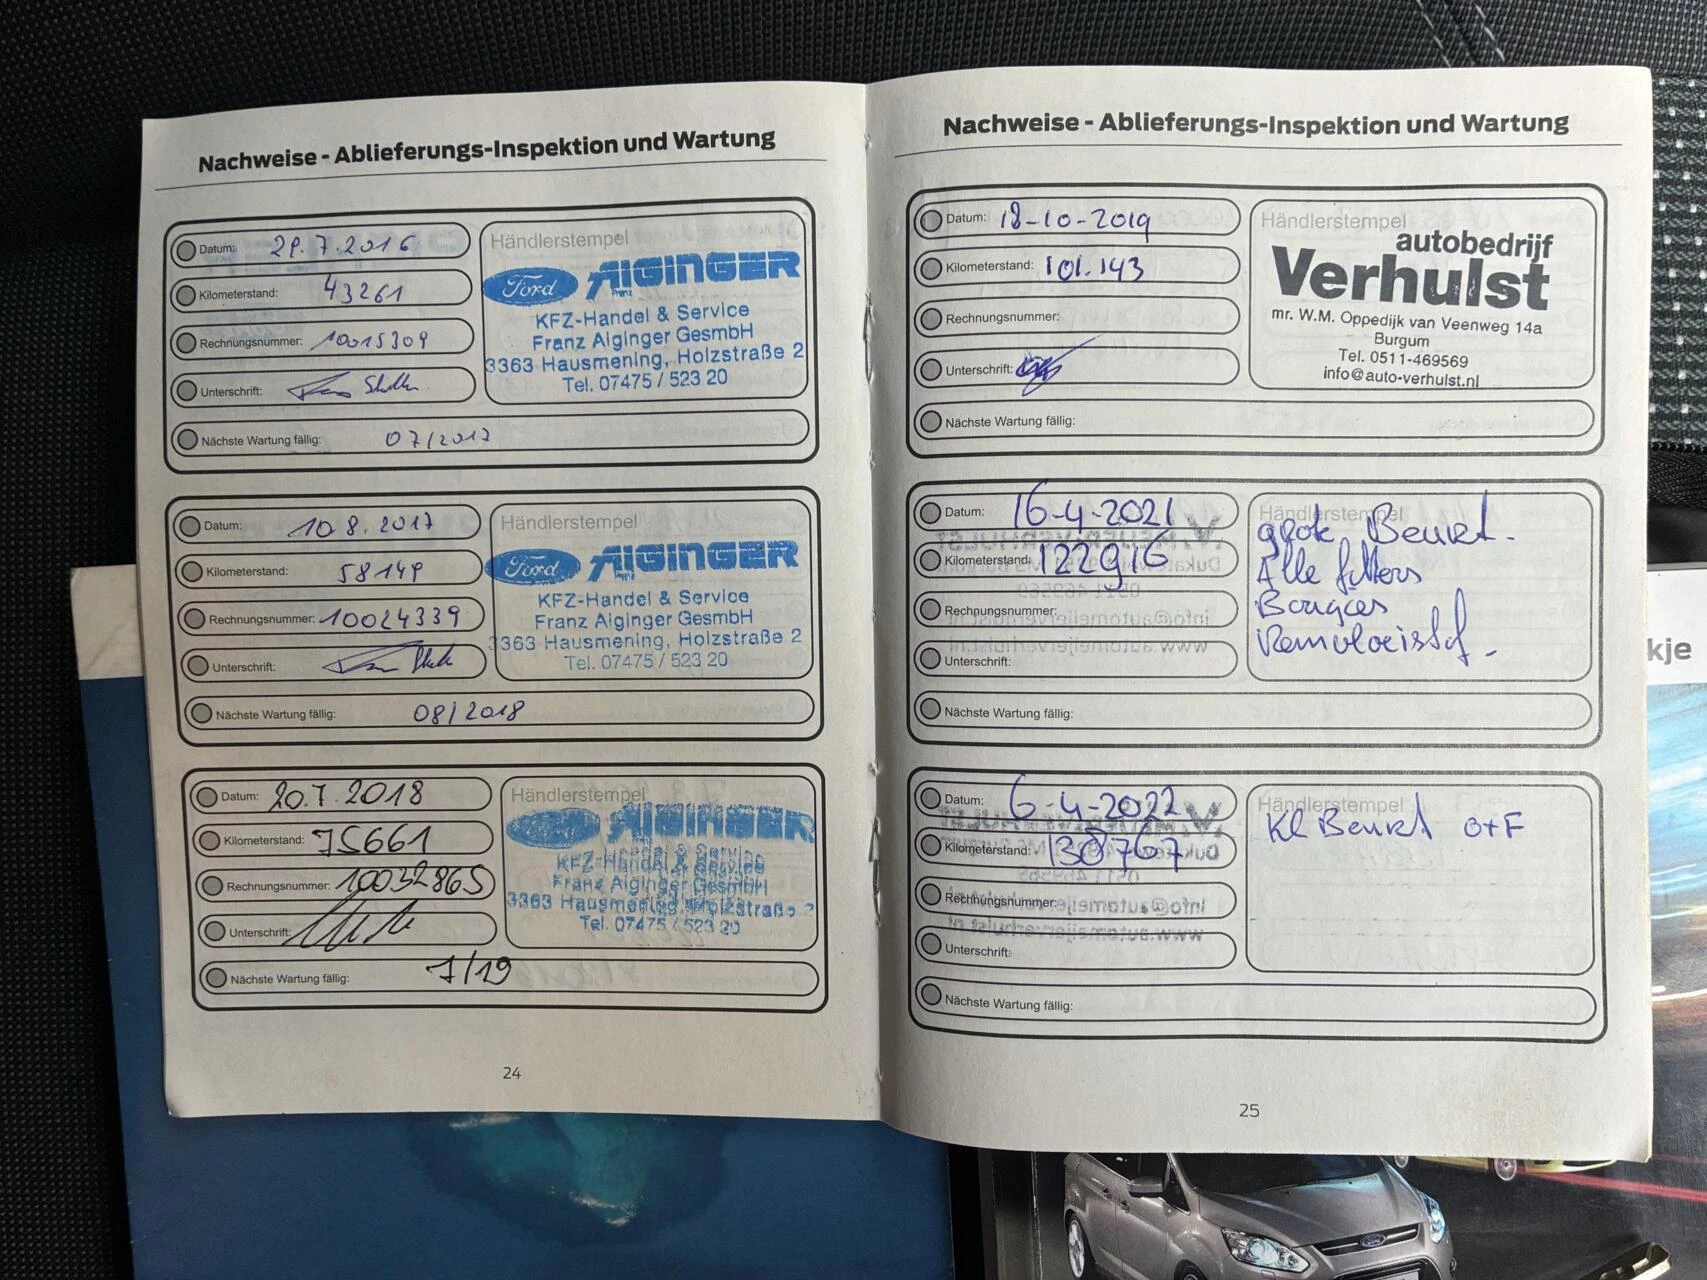 Nachweise - Ablieferungs-Inspektion und Wartung
Datum: 29.7.2016
Kilometerstand: 43261
Rechnungsnummer: 10015309
Unterschrift:
Nächste Wartung fällig: 07/2017
Händlerstempel
Ford AIGINGER
Franz
KFZ-Handel & Service
Franz Aiginger GesmbH
3363 Hausmening, Holzstraße 2
Tel. 07475 / 523 20
Datum: 10.8.2017
Kilometerstand: 58149
Rechnungsnummer: 10024339
Unterschrift:
Nächste Wartung fällig: 08/2018
Händlerstempel
Ford AIGINGER
Franz
KFZ-Handel & Service
Franz Aiginger GesmbH
3363 Hausmening, Holzstraße 2
Tel. 07475 / 523 20
Datum: 20.7.2018
Kilometerstand: 75661
Rechnungsnummer: 10032865
Unterschrift:
Nächste Wartung fällig: 7/19
Händlerstempel
AIGINGER
KFZ-Handel & Service
Franz Aiginger GesmbH
3363 Hausmening, Holzstraße 2
Tel. 07475 / 523 20
24
Nachweise - Ablieferungs-Inspektion und Wartung
Datum: 18-10-2019
Kilometerstand: 101.143
Rechnungsnummer:
Unterschrift:
Nächste Wartung fällig:
Händlerstempel
autobedrijf
Verhulst
mr. W.M. Oppedijk van Veenweg 14a
Burgum
Tel. 0511-469569
info@auto-verhulst.nl
Datum: 16-4-2021
Kilometerstand: 122916
Rechnungsnummer:
Unterschrift:
Nächste Wartung fällig:
Händlerstempel
grote Beurt.
Alle filters
Bougies
Remvloeistof.
Datum: 6-4-2022
Kilometerstand: 130767
Rechnungsnummer:
Unterschrift:
Nächste Wartung fällig:
Händlerstempel
Kl Beurt O+F
25
kje
Ford